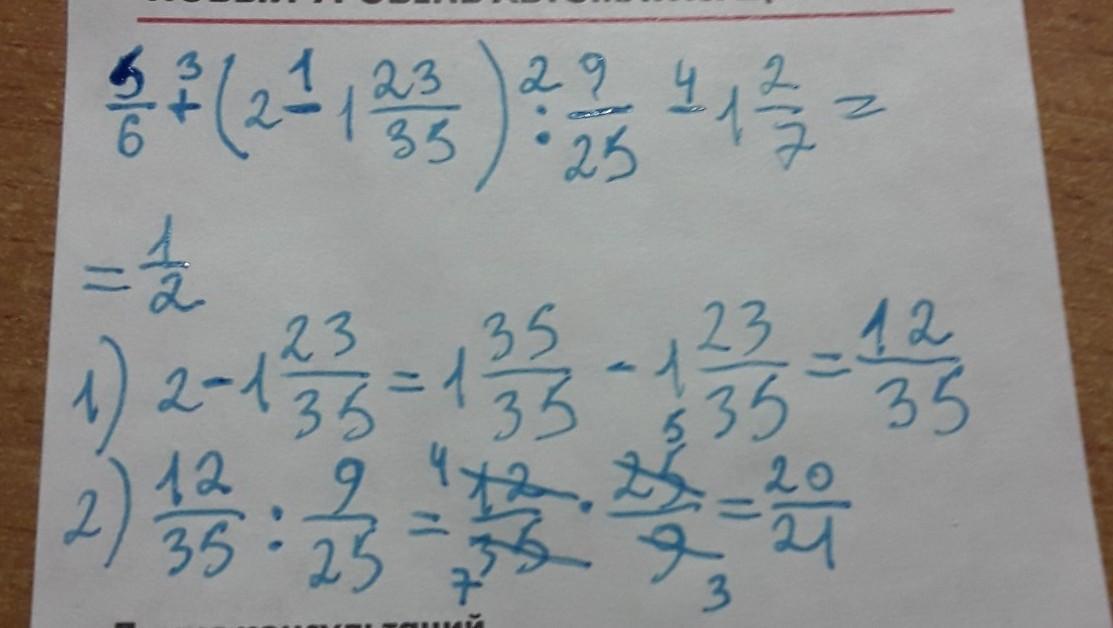 5/6 +³ (2 -¹ 1 23/35) :² 9/25 -⁴ 1 2/7 =
= 1/2
1) 2 - 1 23/35 = 1 35/35 - 1 23/35 = 12/35
2) 12/35 : 9/25 = ⁴12/35₇ · ⁵25/9₃ = 20/21